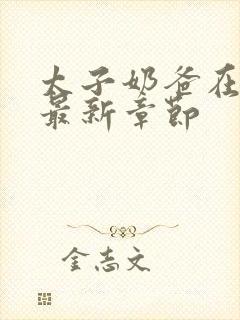 太子奶爸在
最新章节
金志文